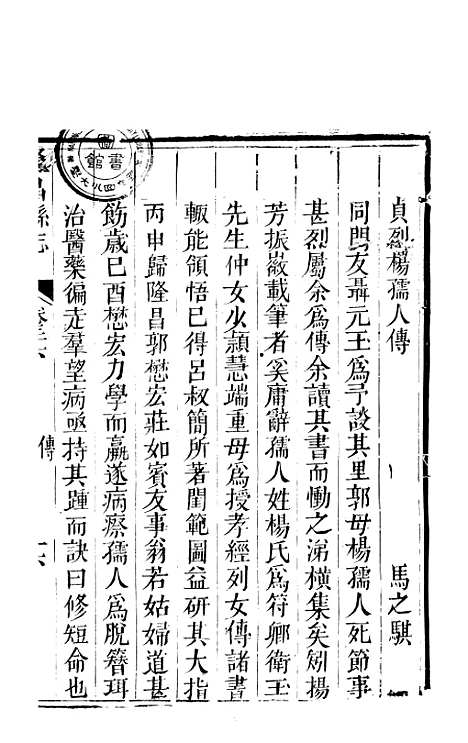 貞烈楊孺人傳
馬之騏
同門友聶元玉爲予談其里郭母楊孺人死節事
甚烈屬余爲傳余讀其書而慟之涕橫集矣矧揚
芳振嶽載筆者奚庸辭孺人姓楊氏爲符卿衛玉
先生仲女少頴慧端重母爲授孝經列女傳諸書
輙能領悟已得呂叔簡所著閨範圖益研其大指
丙申歸隆昌郭懋宏莊如賓友事翁若姑婦道甚
飭歲己酉懋宏力學而羸遂病瘵孺人爲脫簪珥
治醫藥徧走羣望病亟持其踵而訣曰修短命也
昌縣志
傳
書館